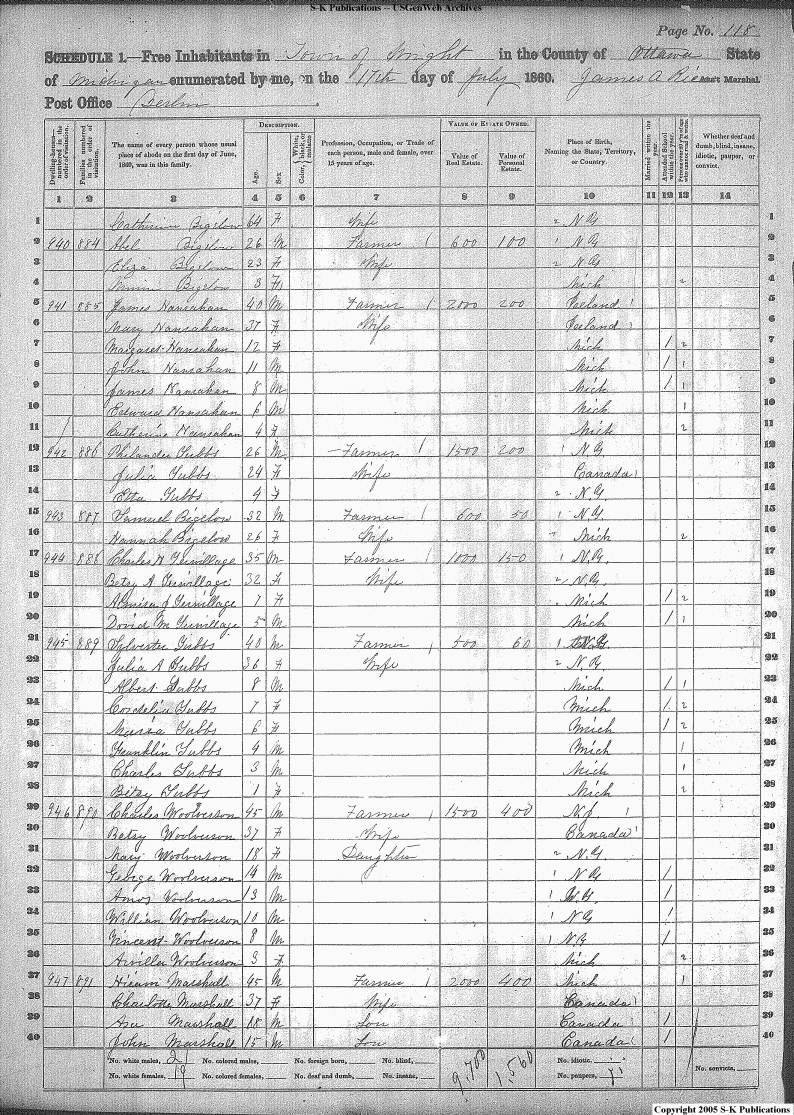 S-K Publications – USGenWeb Archives
Page No. 118
SCHEDULE 1.—Free Inhabitants in Town of Wright in the County of Ottawa State
of Michigan enumerated by me, on the 17th day of July 1860. James A Rice Ass't Marshal.
Post Office Berlin
Dwelling-houses—numbered in the order of visitation.
Families numbered in the order of visitation.
The name of every person whose usual place of abode on the first day of June, 1860, was in this family.
DESCRIPTION.
Age.
Sex
Color, White, black, or mulatto
Profession, Occupation, or Trade of each person, male and female, over 15 years of age.
VALUE OF ESTATE OWNED.
Value of Real Estate.
Value of Personal Estate.
Place of Birth, Naming the State, Territory, or Country.
Married within the year.
Attended School within the year.
Whether deaf and dumb, blind, insane, idiotic, pauper, or convict.
1 2 3 4 5 6 7 8 9 10 11 12 13 14
1 Catherine Bigelow 64 F Wife 2 N.Y. 1
2 940 884 Abel Bigelow 26 M Farmer 1 600 100 1 N.Y. 2
3 Eliza Bigelow 23 F Wife 2 N.Y. 3
4 Bigelow 3 F Mich 2 4
5 941 885 James Hansahan 40 M Farmer 1 2000 200 Ireland 1 5
6 Mary Hansahan 37 F Wife Ireland 1 6
7 Margaret Hansahan 12 F Mich 1 2 7
8 John Hansahan 11 M Mich 1 1 8
9 James Hansahan 8 M Mich 1 1 9
10 Edward Hansahan 6 M Mich 1 10
11 Catherine Hansahan 4 F Mich 2 11
12 942 886 Philander Tubbs 26 M Farmer 1 1500 200 1 N.Y. 12
13 Julia Tubbs 24 F Wife Canada 1 13
14 Etta Tubbs 4 F 2 N.Y. 14
15 943 887 Samuel Bigelow 32 M Farmer 1 600 50 1 N.Y. 15
16 Hannah Bigelow 26 F Wife Mich 2 16
17 944 888 Charles H Terwillage 35 M Farmer 1 1000 150 1 N.Y. 17
18 Betsy A Terwillage 32 F Wife 2 N.Y. 18
19 Almira J Terwillage 7 F Mich 1 2 19
20 David M Terwillage 5 M Mich 1 1 20
21 945 889 Sylvester Tubbs 40 M Farmer 1 500 60 1 N.Y. 21
22 Julia A Tubbs 36 F Wife 2 N.Y. 22
23 Albert Tubbs 8 M Mich 1 1 23
24 Cordelia Tubbs 7 F Mich 1 2 24
25 Tubbs 6 F Mich 1 2 25
26 Franklin Tubbs 4 M Mich 1 26
27 Charles Tubbs 3 M Mich 1 27
28 Betsy Tubbs 1 F Mich 2 28
29 946 890 Charles Woolverson 45 M Farmer 1 1500 400 N.J. 1 29
30 Betsy Woolverson 37 F Wife Canada 1 30
31 Mary Woolverson 18 F Daughter 2 N.Y. 31
32 George Woolverson 14 M 1 N.Y. 1 32
33 Amos Woolverson 13 M 1 N.Y. 1 33
34 William Woolverson 10 M 1 N.Y. 1 34
35 Vincent Woolverson 8 M 1 N.Y. 1 35
36 Arvilla Woolverson 3 F Mich 2 36
37 947 891 Hiram Marshall 45 M Farmer 1 2000 400 Mich 1 37
38 Charlotte Marshall 37 F Wife Canada 1 38
39 Asa Marshall 18 M Son Canada 1 1 39
40 John Marshall 15 M Son Canada 1 1 40
No. white males, 21 No. colored males, No. foreign born, No. blind, 9,700 1,560 No. idiotic,
No. white females, 19 No. colored females, No. deaf and dumb, No. insane, No. paupers, No. convicts,
Copyright 2005 S-K Publications